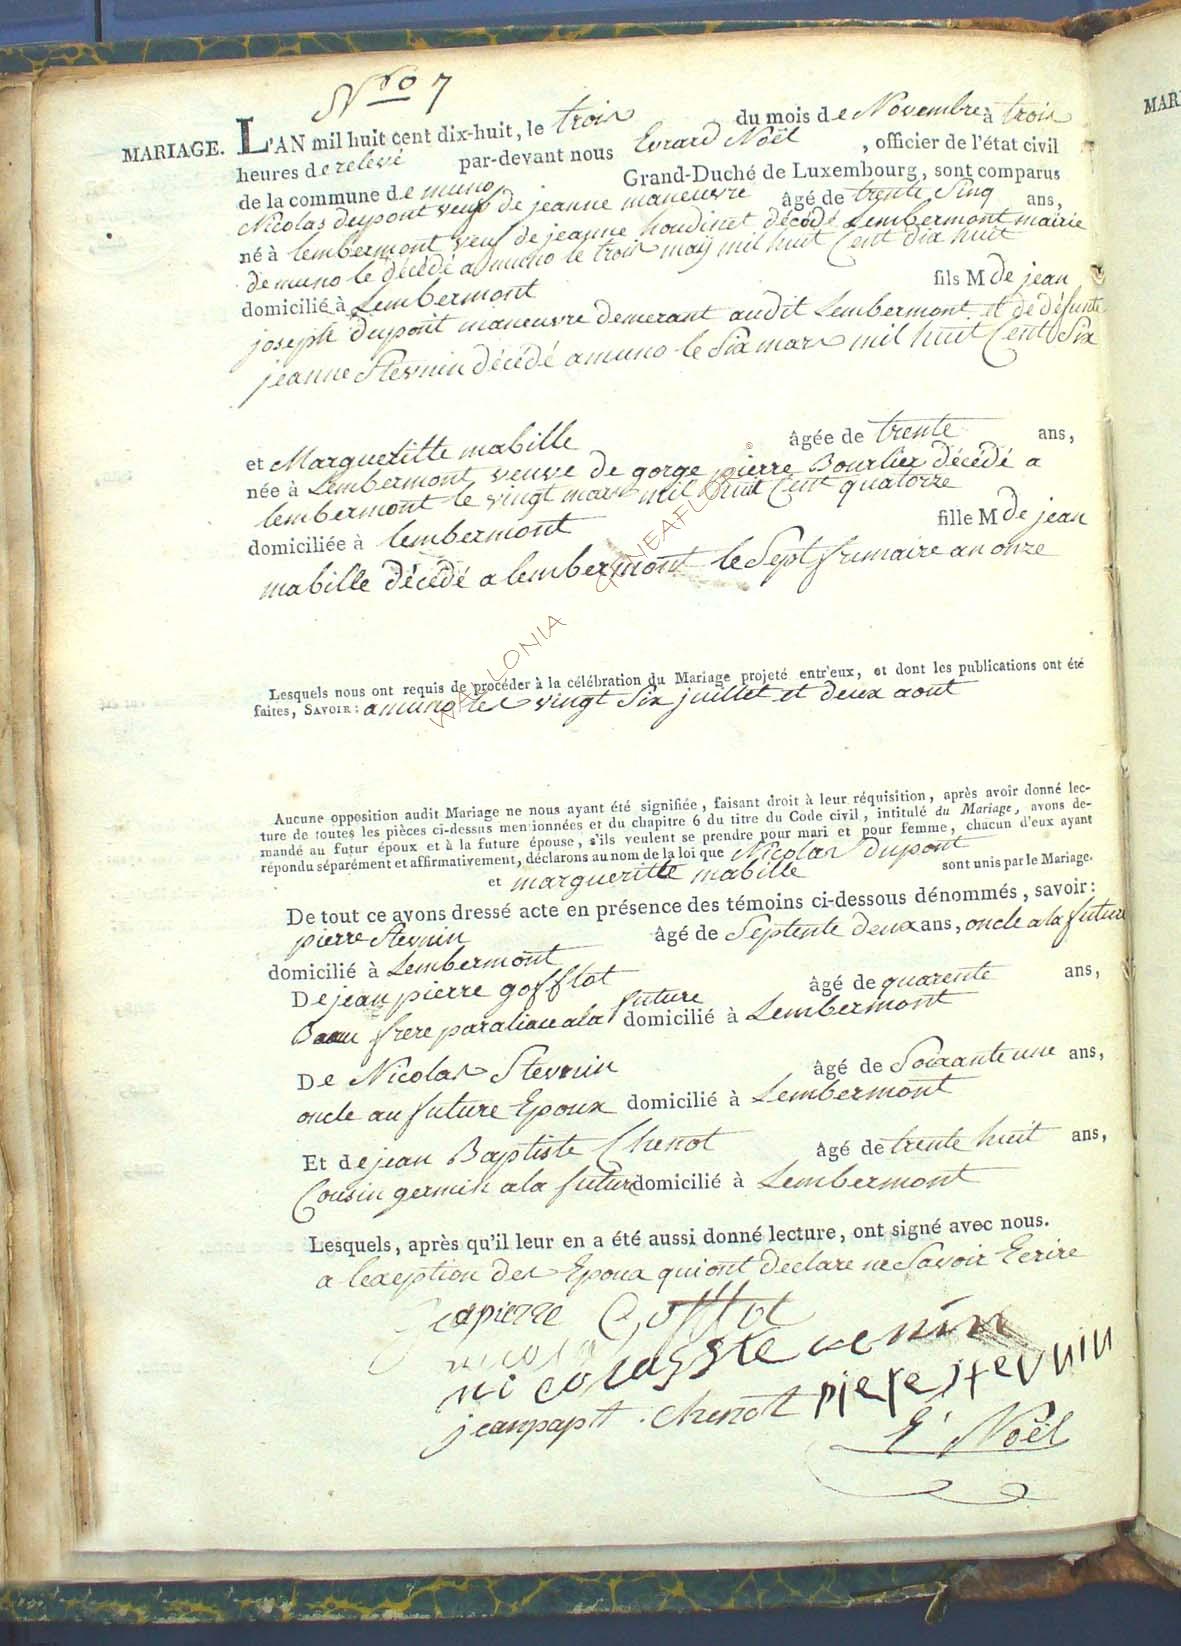 Nro 7
MARIAGE. L'AN mil huit cent dix-huit, le trois du mois de Novembre à trois
heures de relevé par-devant nous Evrard Noël, officier de l'état civil
de la commune de muno Grand-Duché de Luxembourg, sont comparus
Nicolas dupont veuf de jeanne maneuvre âgé de trente Sinq ans,
né à lembermont veuf de jeanne houdinet décédé Lembermont mairie
de muno le décédé a muno le trois maÿ mil huit Cent dix huit
domicilié à Lembermont fils M de jean
joseph dupont maneuvre demerant audit Lembermont et de défunte
jeanne Stevnin décédé a muno le Six mars mil huit Cent Six
et Margueritte mabille âgée de trente ans,
née à Lembermont veuve de gorge pierre Bourlier décédé a
lembermont le vingt mars mil huit Cent quatorze
domiciliée à lembermont fille M de jean
mabille décédé a lembermont le Sept frimaire an onze
WALLONIA GENEAFLOR ©
Lesquels nous ont requis de procéder à la célébration du Mariage projeté entr'eux, et dont les publications ont été
faites, SAVOIR: a muno les vingt Six juillet et deux aout
Aucune opposition audit Mariage ne nous ayant été signifiée, faisant droit à leur réquisition, après avoir donné lec-
ture de toutes les pièces ci-dessus mentionnées et du chapitre 6 du titre du Code civil, intitulé du Mariage, avons de-
mandé au futur époux et à la future épouse, s'ils veulent se prendre pour mari et pour femme, chacun d'eux ayant
répondu séparément et affirmativement, déclarons au nom de la loi que Nicolas dupont
et margueritte mabille sont unis par le Mariage.
De tout ce avons dressé acte en présence des témoins ci-dessous dénommés, savoir:
pierre Stevnin âgé de Septente deux ans, oncle a la future
domicilié à Lembermont
De jean pierre gofflot âgé de quarente ans,
Beau frere par aliace a la future domicilié à Lembermont
De Nicolas Stevnin âgé de Soixante une ans,
oncle au future Epoux domicilié à Lembermont
Et de jean Baptiste Chenot âgé de trente huit ans,
Cousin germin a la future domicilié à Lembermont
Lesquels, après qu'il leur en a été aussi donné lecture, ont signé avec nous.
a lexeption des Epoux qui ont declare ne Savoir Ecrire
jeapierre Gofflot
nicolasste venin
pierre stevnin
jeanpapt chenot
E. Noël
MAR